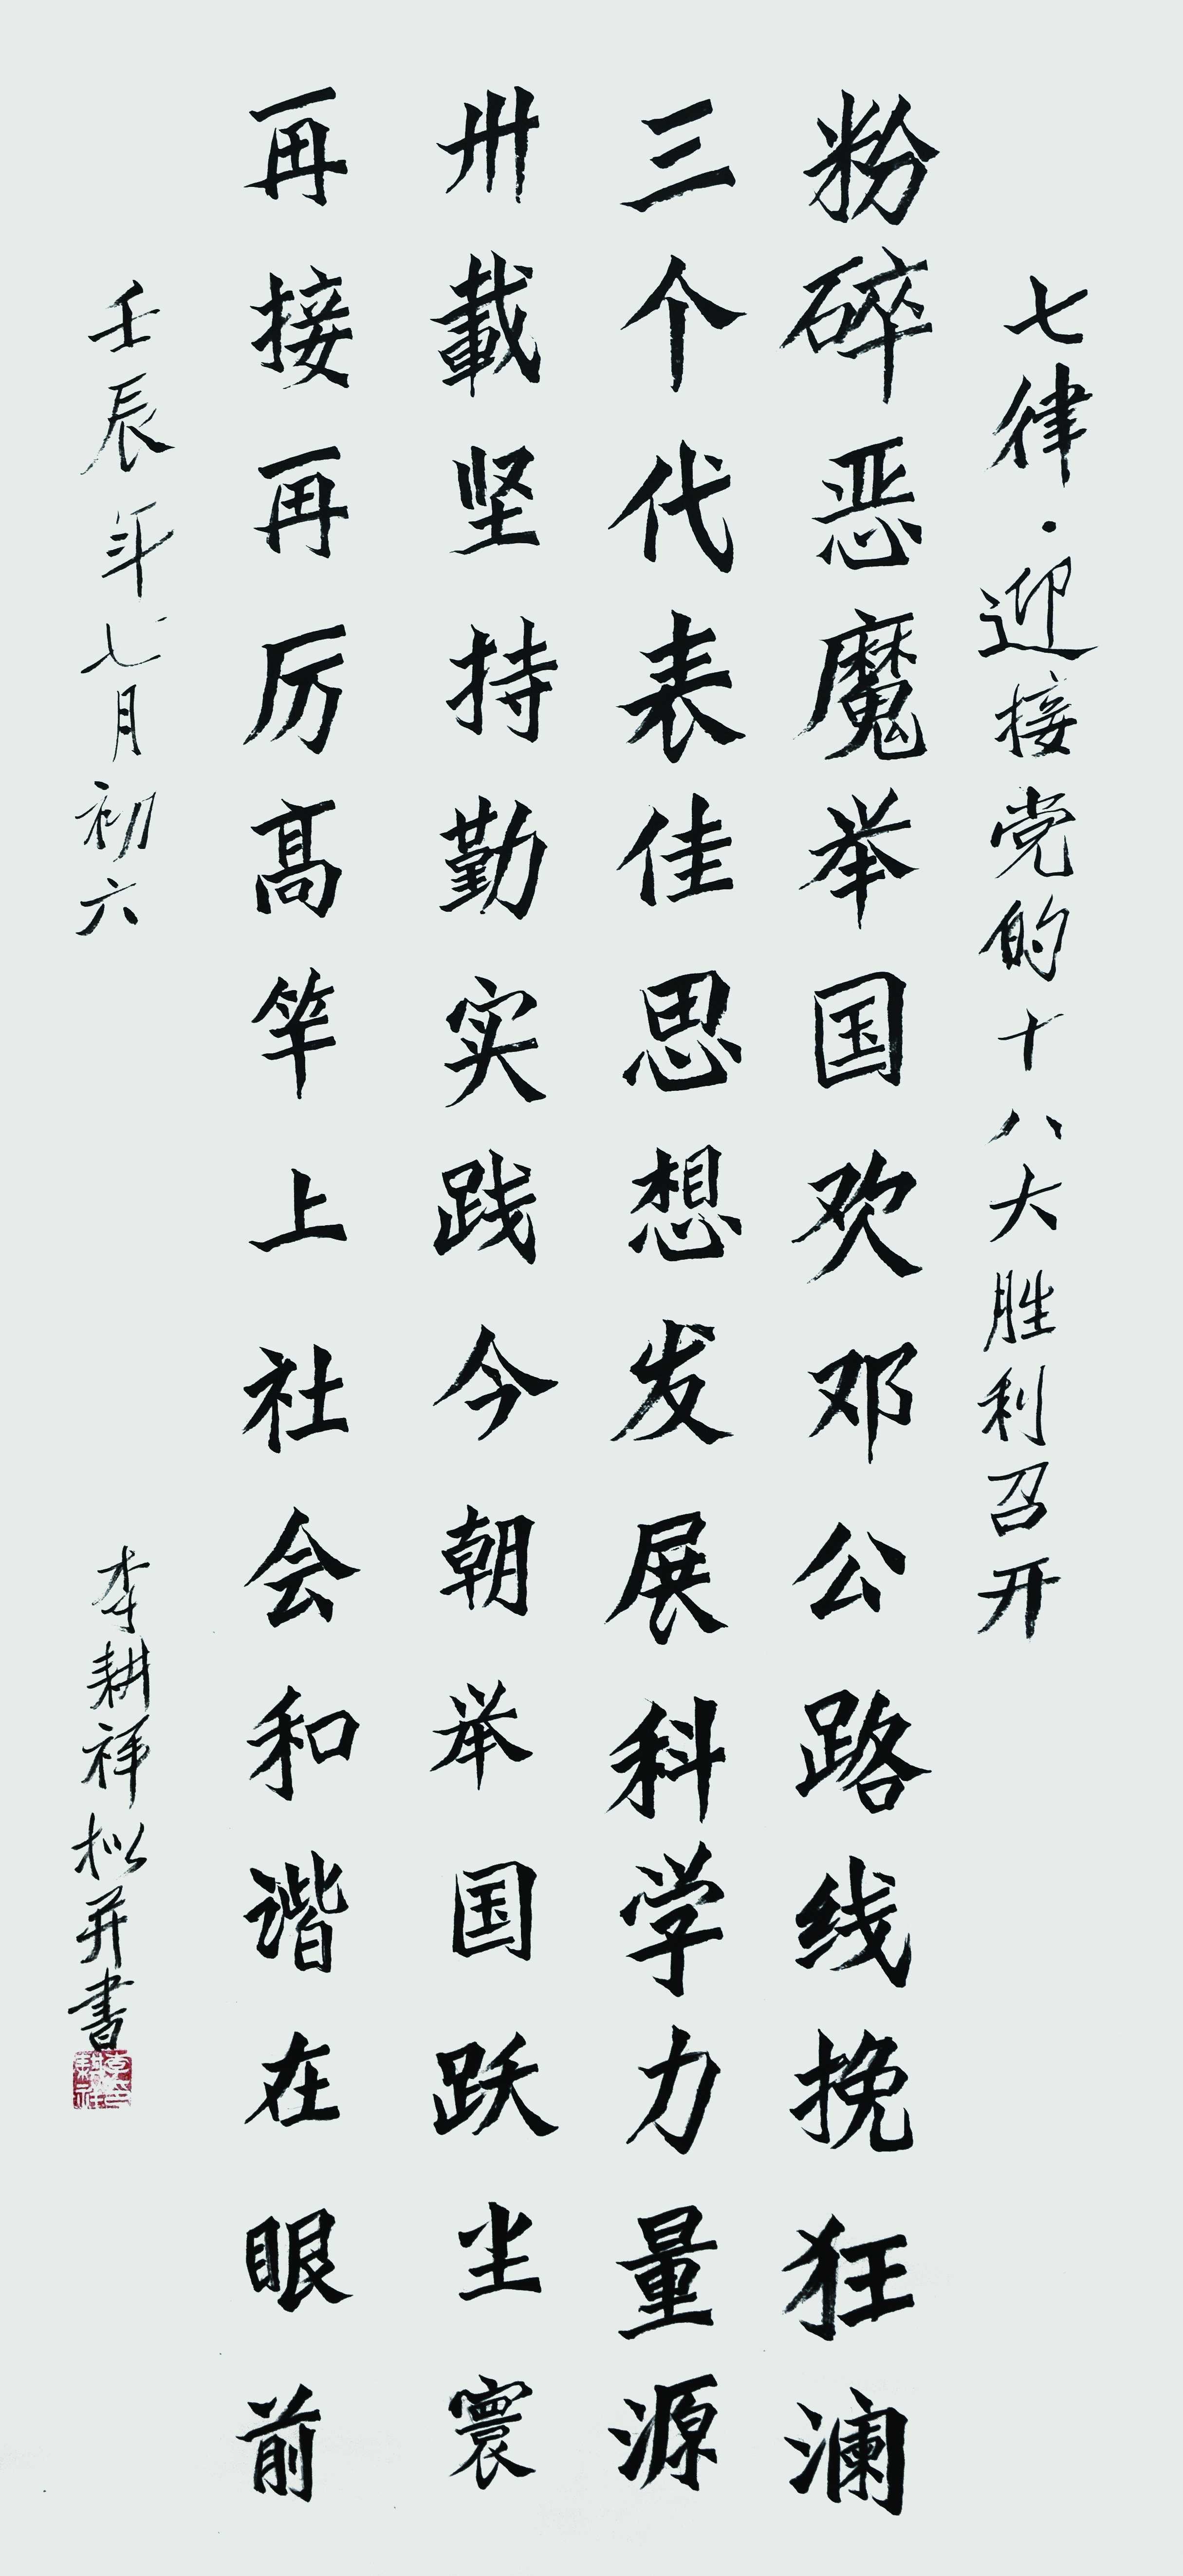 七律·迎接党的十八大胜利召开
粉碎恶魔举国欢邓公路线挽狂澜
三个代表佳思想发展科学力量源
卅載坚持勤实践今朝举国跃尘寰
再接再厉髙竿上社会和谐在眼前
壬辰年七月初六
李耕祥拟并書